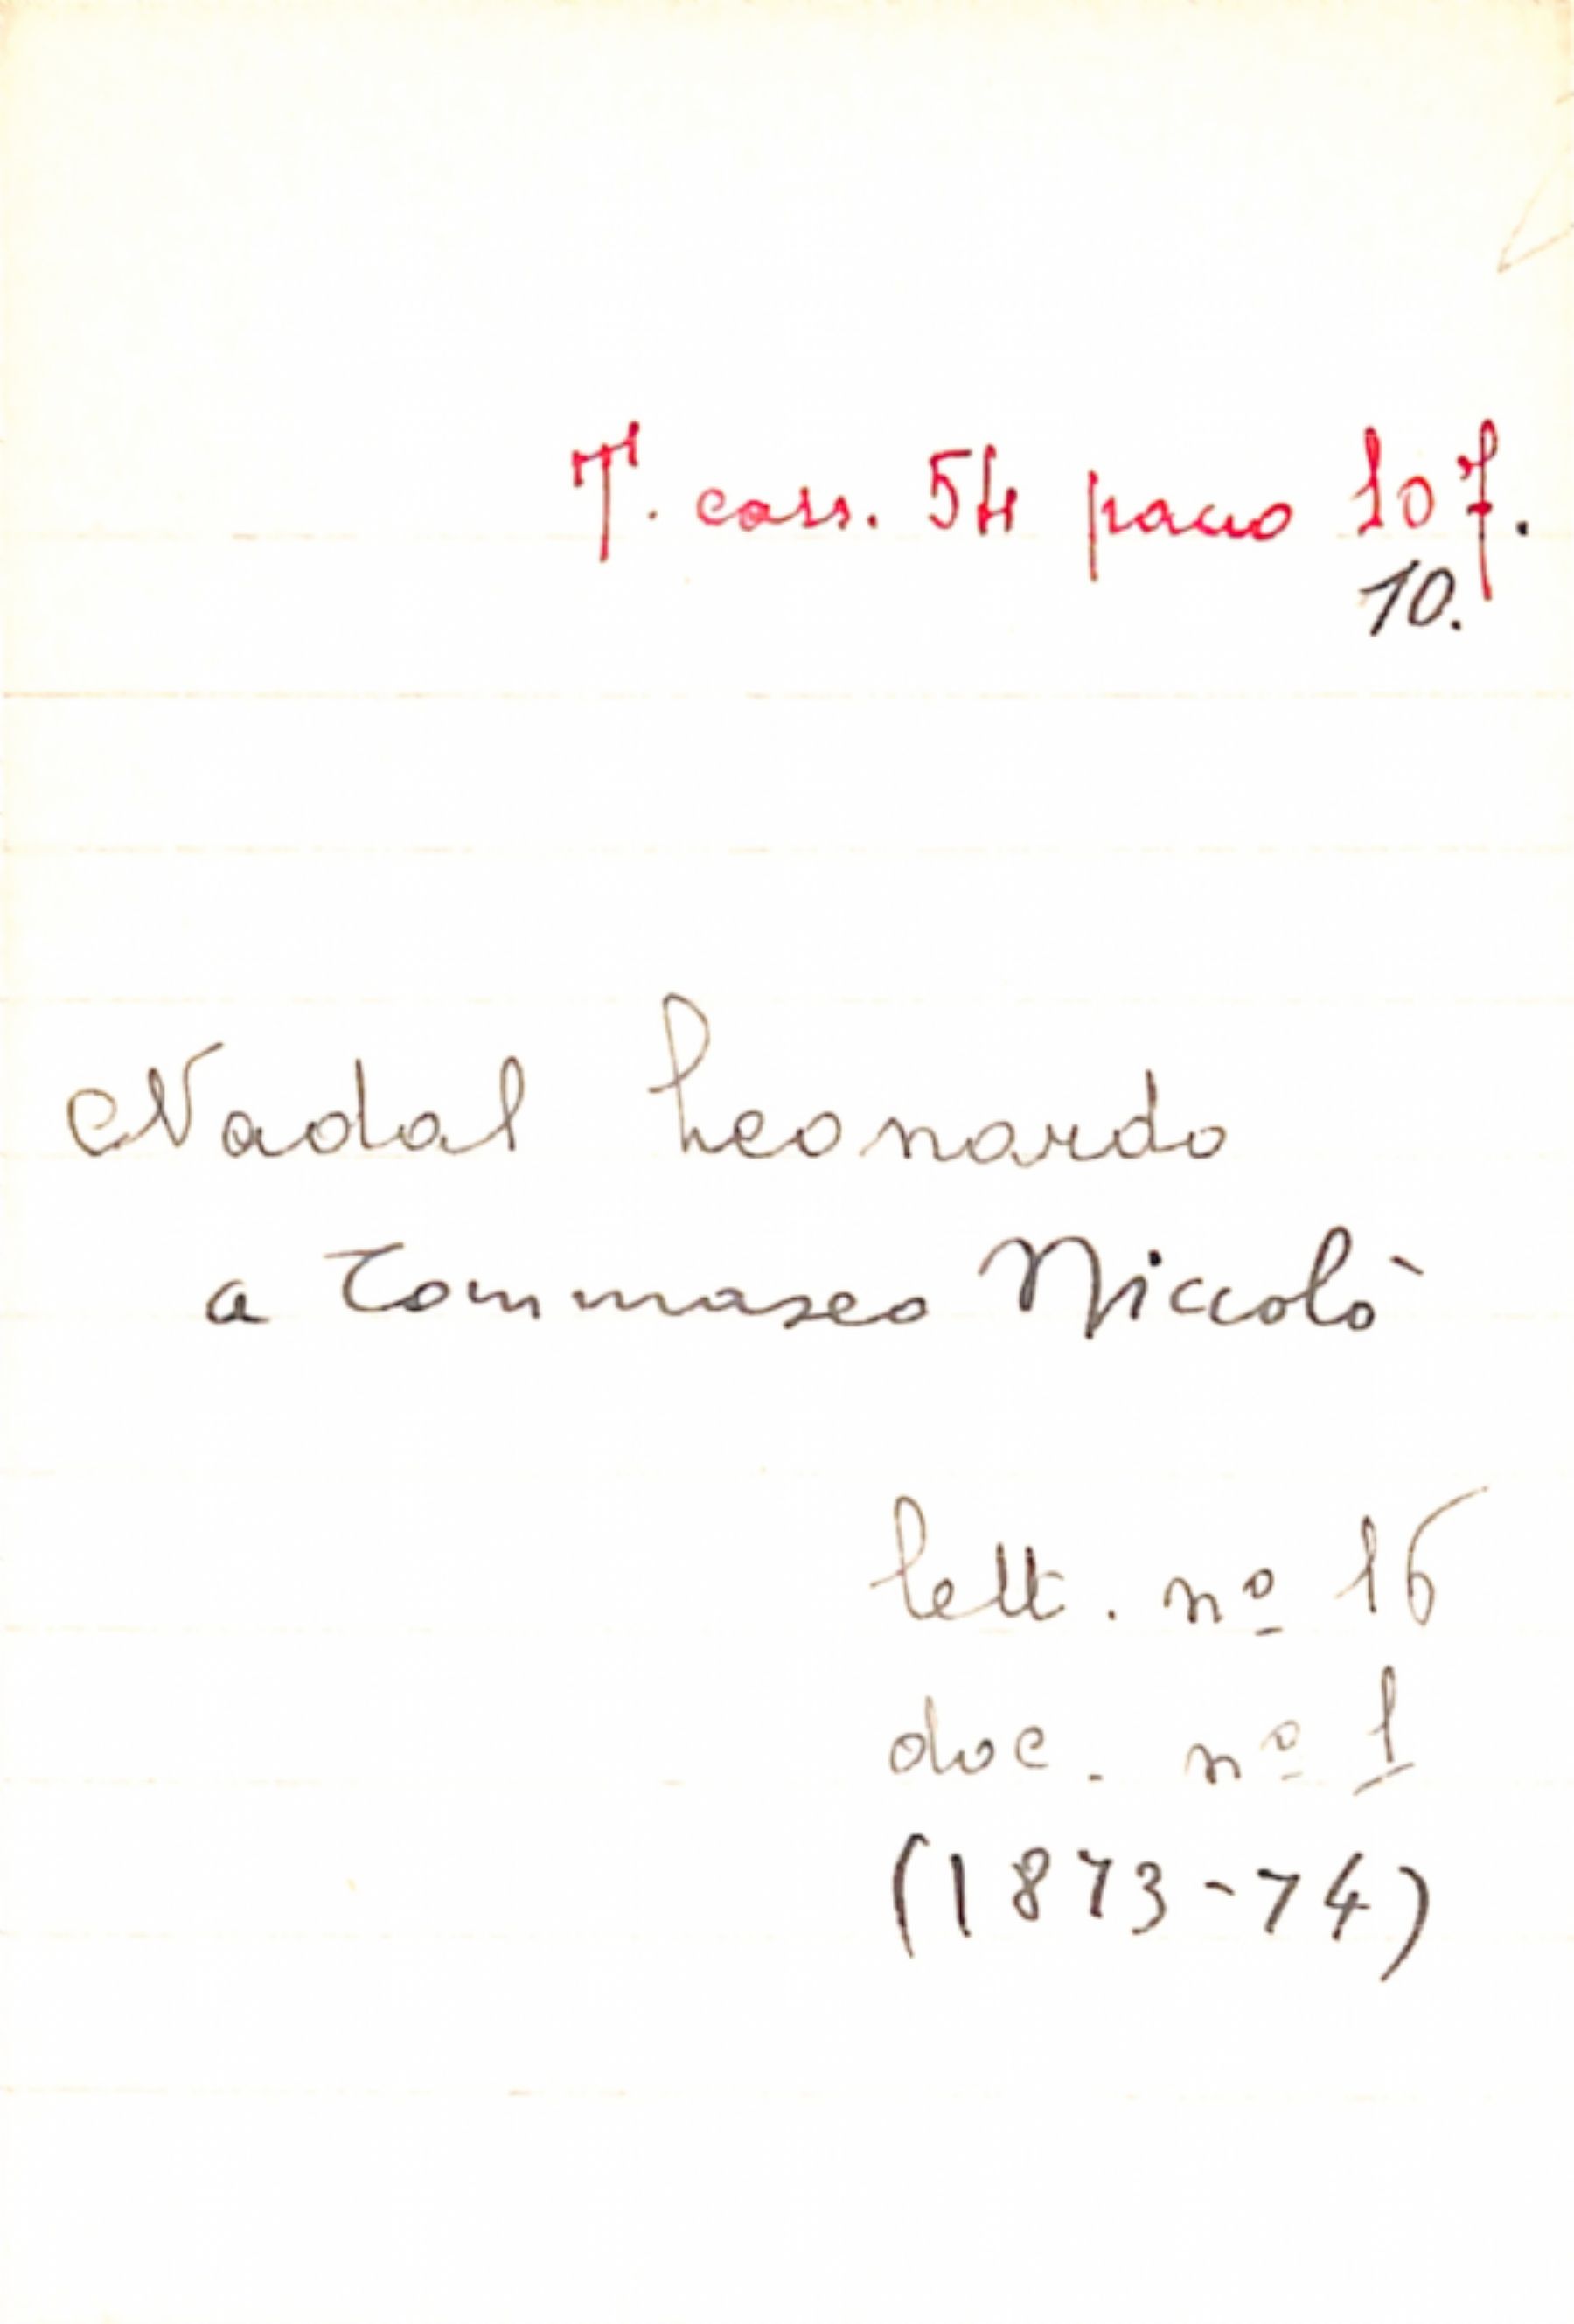 T. cass. 54 pacco 107.
10.
Nadal Leonardo
a Tommaseo Niccolò
lett. nº 16
doc. nº 1
(1873-74)